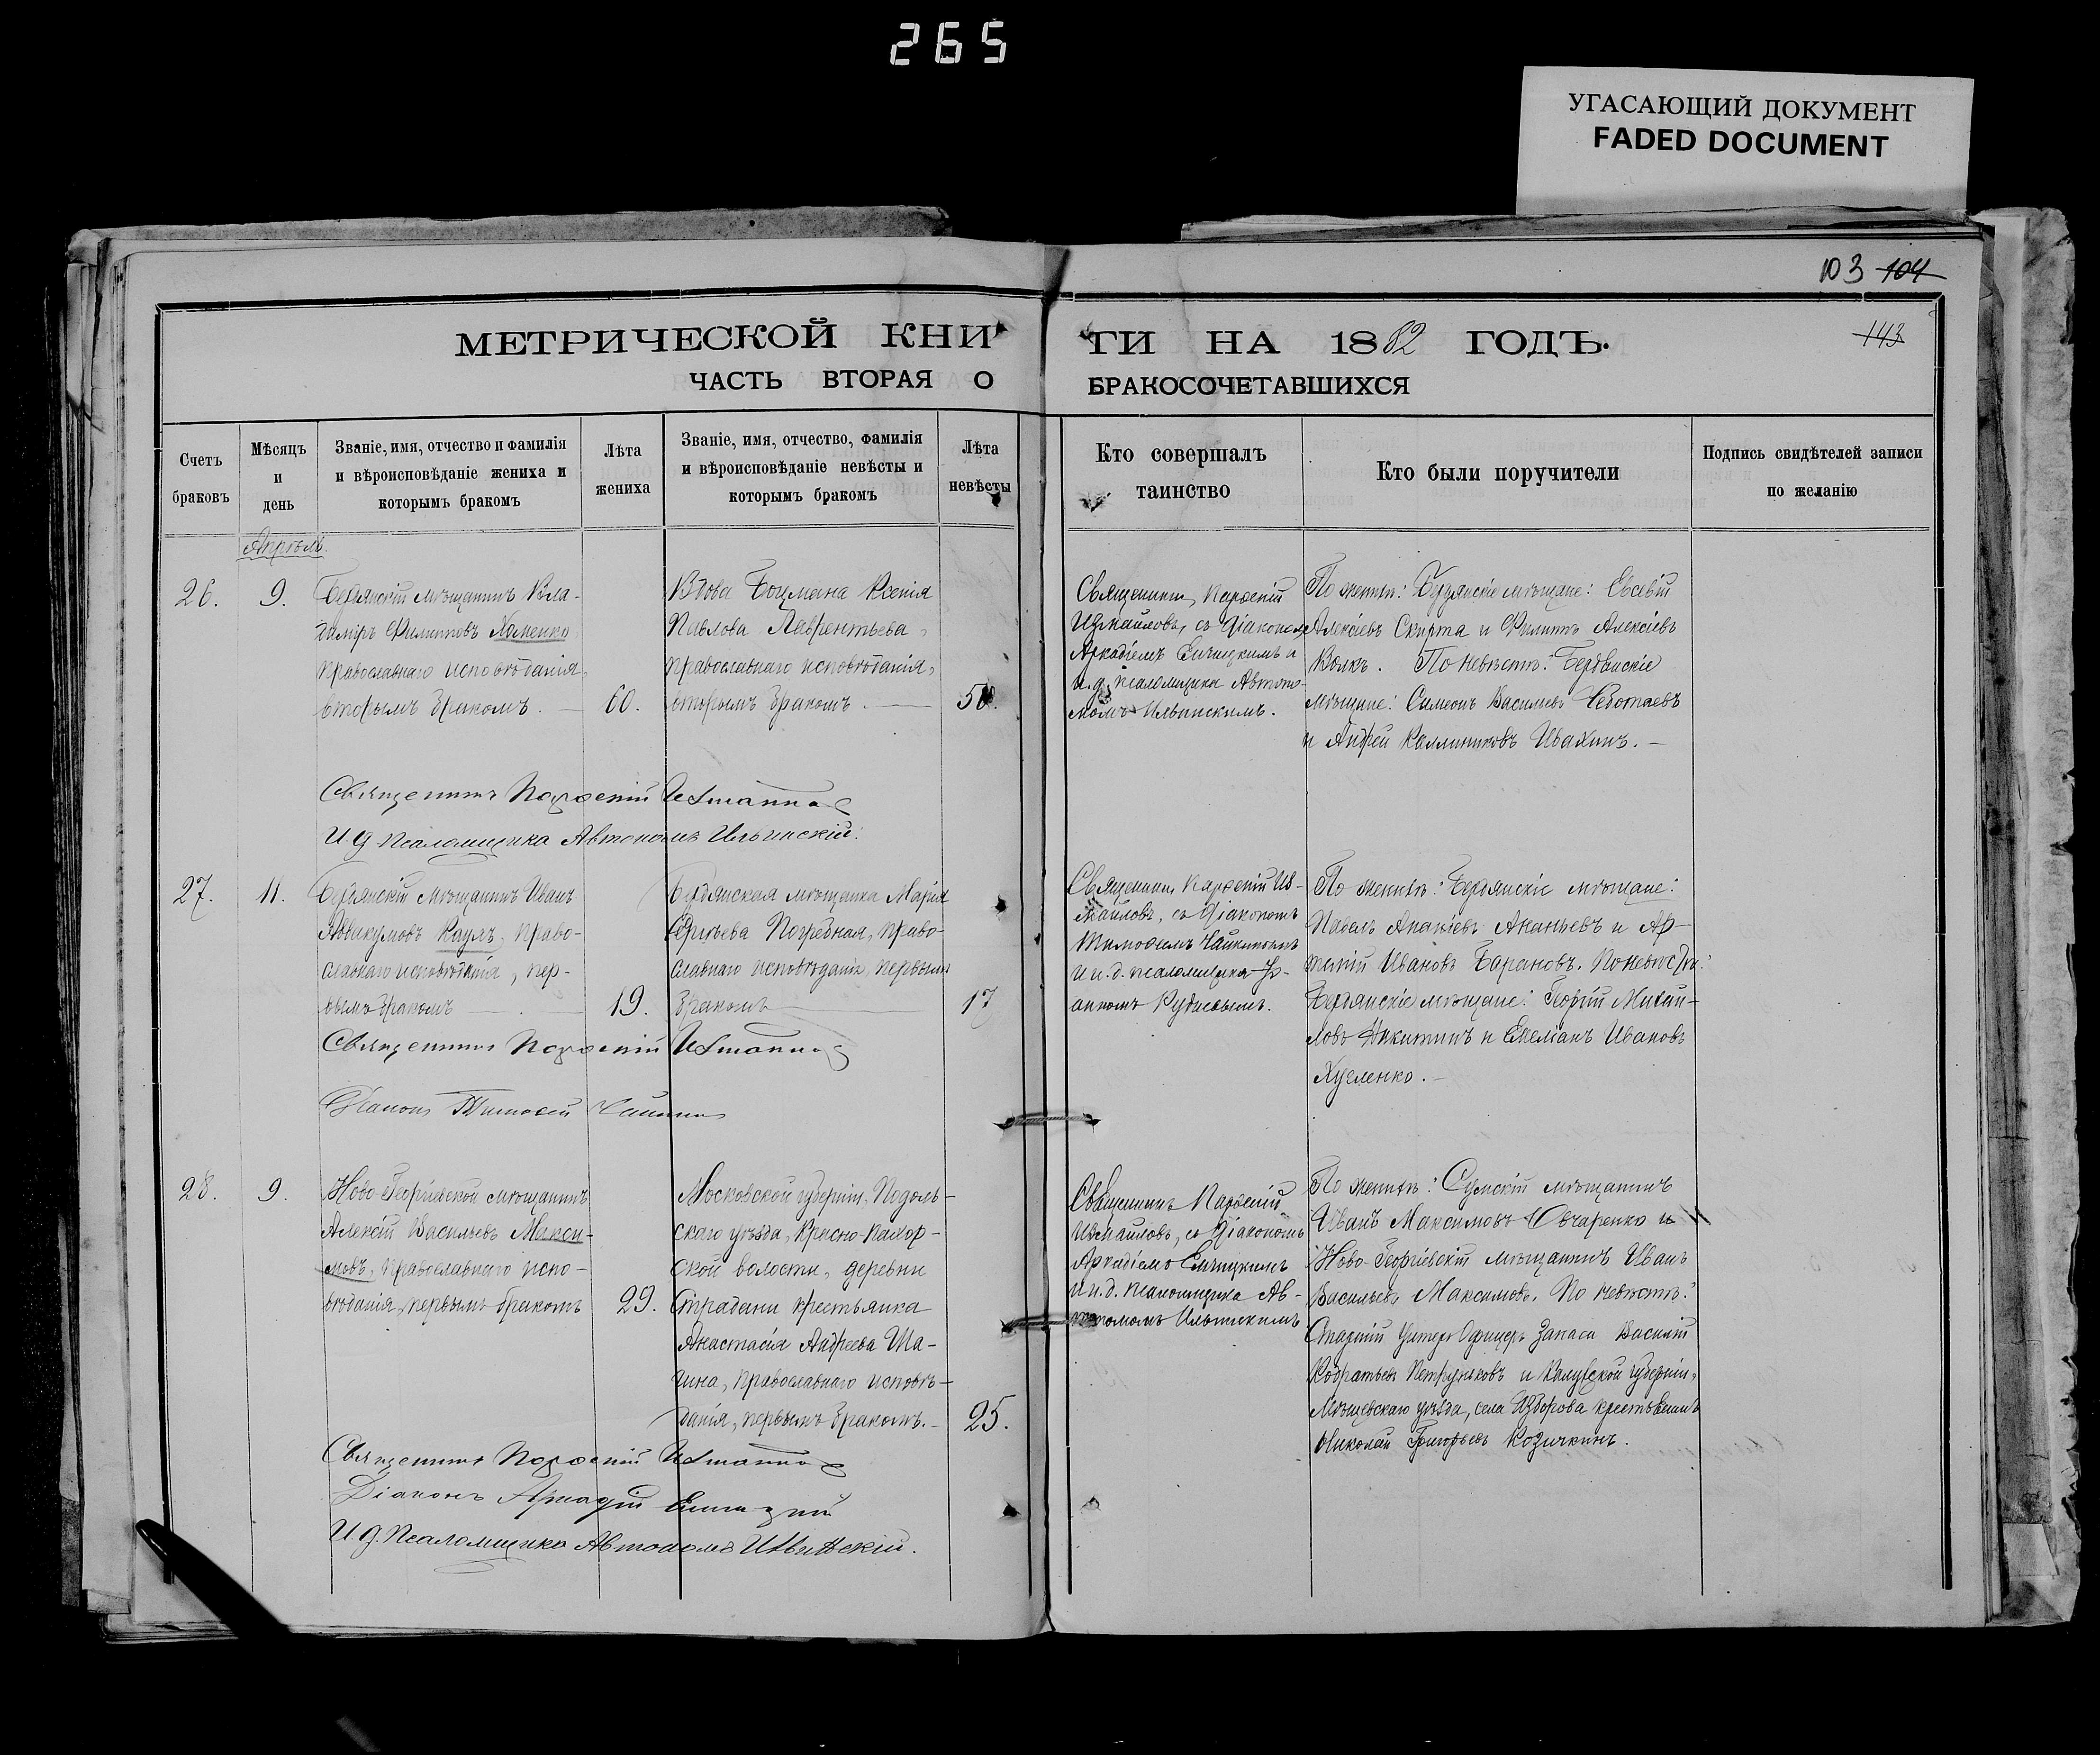 265
УГАСАЮЩИЙ ДОКУМЕНТ
FADED DOCUMENT
103 104
143
МЕТРИЧЕСКОЙ КНИ
ГИ НА 1882 ГОДЪ.
ЧАСТЬ ВТОРАЯ О
БРАКОСОЧЕТАВШИХСЯ
Счетъ браковъ
Мѣсяцъ и день
Званіе, имя, отчество и фамилія
и вѣроисповѣданіе жениха и
которымъ бракомъ
Лѣта жениха
Званіе, имя, отчество, фамилія
и вѣроисповѣданіе невѣсты и
которымъ бракомъ
Лѣта невѣсты
Кто совершалъ
таинство
Кто были поручители
Подпись свидѣтелей записи
по желанію
Апрѣль.
26.
9.
Бердянскій мѣщанинъ Вла-
диміръ Филиповъ Хоменко,
православнаго исповѣданія,
вторымъ бракомъ. —
60.
Вдова Боцмана Ксенія
Павлова Лаврентьева,
православнаго исповѣданія,
вторымъ бракомъ. —
50.
Священникъ Парѳеній
Измайловъ, съ Діакономъ
Аркадіемъ и
и.д. псаломщика Автоно-
момъ Ильинскимъ.
По женихѣ: Бердянскіе мѣщане: Евсевій
Алексѣевъ Скирта и Филиппъ Алексѣевъ
Волкъ. По невѣстѣ: Бердянскіе
мѣщане: Симеонъ Васильевъ Чеботаевъ
и Андрей Каллиниковъ Ивахинъ. —
Священникъ Парѳеній Измайловъ
И.д. Псаломщика Автономъ Ильинскій.
27.
11.
Бердянскій мѣщанинъ Иванъ
Аввакумовъ Кауль, право-
славнаго исповѣданія, пер-
вымъ бракомъ —
19.
Бердянская мѣщанка Марія
Погребная, право-
славнаго исповѣданія, первымъ
бракомъ —
17
Священникъ Парѳеній Из-
майловъ, съ Діакономъ
Тимоѳеемъ Чайкинымъ
и и.д. псаломщика
По женихѣ: Бердянскіе мѣщане:
Павелъ Ананіевъ Ананьевъ и Ар-
темій Ивановъ Барановъ. По невѣстѣ:
Бердянскіе мѣщане: Георгій Михай-
ловъ Никитинъ и Емеліанъ Ивановъ
Хугленко. —
Священникъ Парѳеній Измайловъ
Діаконъ Тимоѳей Чайкинъ
28.
9.
Ново-Георгіевской мѣщанинъ
Алексій Васильевъ Макси-
мовъ, православнаго испо-
вѣданія, первымъ бракомъ
29.
Московской губерніи, Подоль-
скаго уѣзда, Красно-Пахор-
ской волости, деревни
Страдани крестьянка
Анастасія Андреева Ша-
гина, православнаго исповѣ-
данія, первымъ бракомъ. —
25.
Священникъ Парѳеній
Измайловъ, съ Діакономъ
Аркадіемъ
и и.д. псаломщика Ав-
тономомъ Ильинскимъ
По женихѣ: Сумскій мѣщанинъ
Иванъ Максимовъ Овчаренко и
Ново-Георгіевскій мѣщанинъ Иванъ
Васильевъ Максимовъ. По невѣстѣ:
Старшій Унтеръ Офицеръ Запаса Василій
Кодратьевъ Петруньковъ и Калужской губерніи,
Мѣщевскаго уѣзда, села крестьянинъ
Николай Григорьевъ Козичкинъ.
Священникъ Парѳеній Измайловъ
Діаконъ Аркадій
И.д. Псаломщика Автономъ Ильинскій.